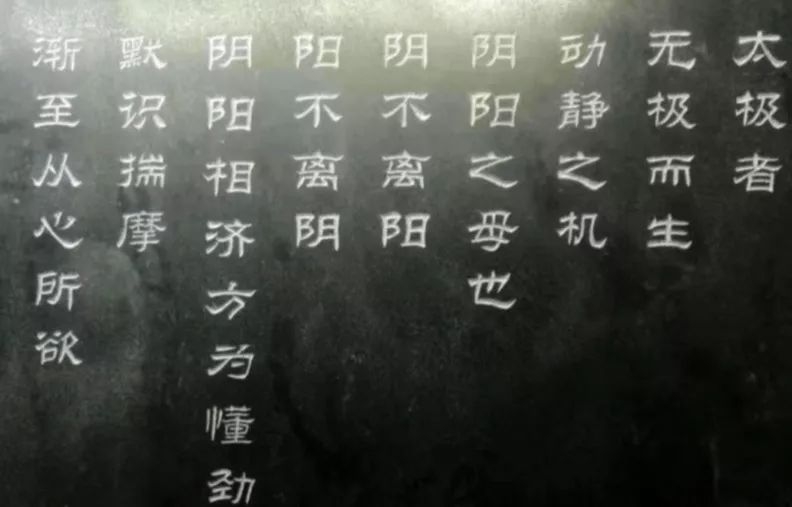 太极者
无极而生
动静之机
阴阳之母也
阴不离阳
阳不离阴
阴阳相济方为懂劲
默识揣摩
渐至从心所欲